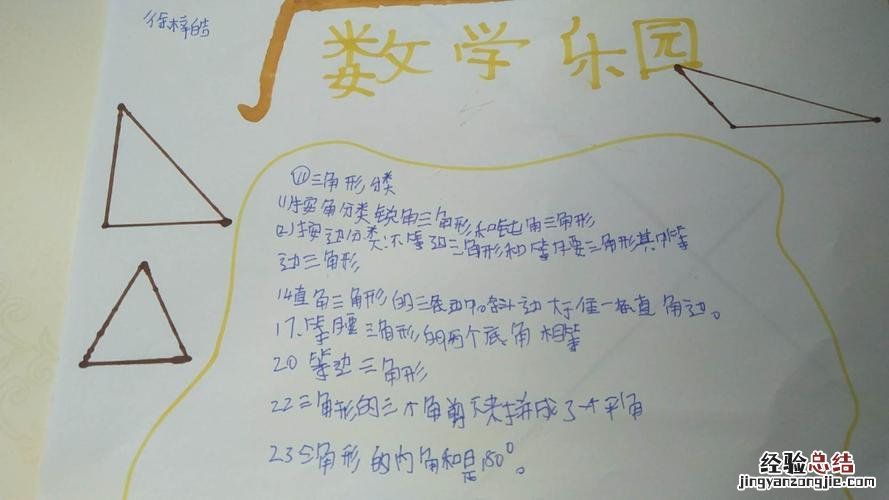 徐梓皓
数学乐园
⑪三角形分类
(1)按角分类锐角三角形和钝角三角形
(2)按边分类:不等边三角形和等腰三角形其中等
边三角形
14直角三角形的三条边中。斜边大于任一条直角边。
17.等腰三角形的两个底角相等
20 等边三角形
22三角形的三个角剪下来拼成了一个平角
23三角形的内角和是180°。
经验总结
jingyanzongjie.com